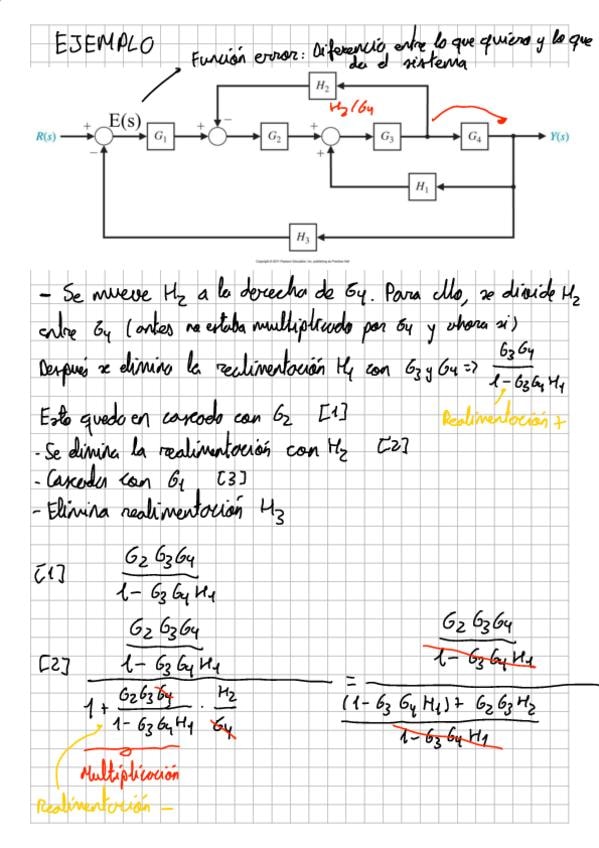 EJEMPLO
Función error: Diferencia entre lo que quiero y lo que
da el sistema
H₂
H₂/G₄
E(s)
R(s) + − G₁ + − G₂ + + G₃ G₄ Y(s)
H₁
H₃
Copyright © 2011 Pearson Education, Inc. publishing as Prentice Hall
- Se mueve H₂ a la derecha de G₄. Para ello, se divide H₂
entre G₄ (antes no estaba multiplicado por G₄ y ahora si)
Después se elimina la realimentación H₁ con G₃ y G₄ => G₃G₄ / 1 - G₃G₄H₁
Esto queda en cascada con G₂ [1]
Realimentación +
- Se elimina la realimentación con H₂ [2]
- Cascada con G₁ [3]
- Elimina realimentación H₃
[1] G₂ G₃G₄ / 1 - G₃ G₄ H₁
[2] G₂ G₃G₄ / 1 - G₃ G₄ H₁ / 1 + G₂G₃G₄ / 1 - G₃G₄H₁ · H₂ / G₄ = G₂ G₃G₄ / 1 - G₃ G₄ H₁ / (1 - G₃ G₄ H₁) + G₂ G₃ H₂ / 1 - G₃ G₄ H₁
Multiplicación
Realimentación -